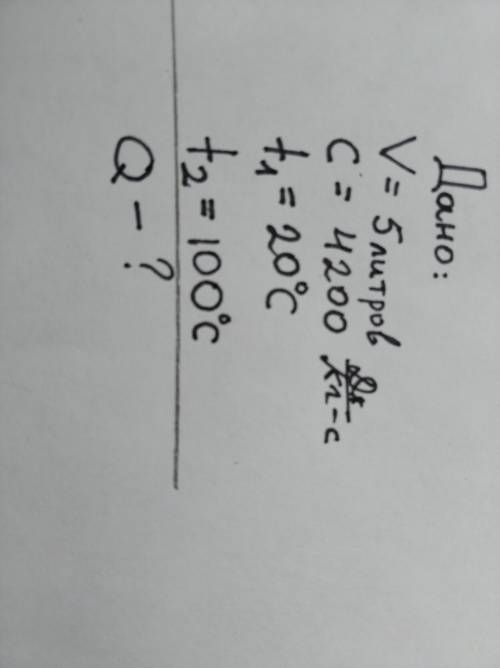 Дано:
V = 5 литров
C = 4200 кг-с
t₁ = 20°C
t₂ = 100°C
Q - ?